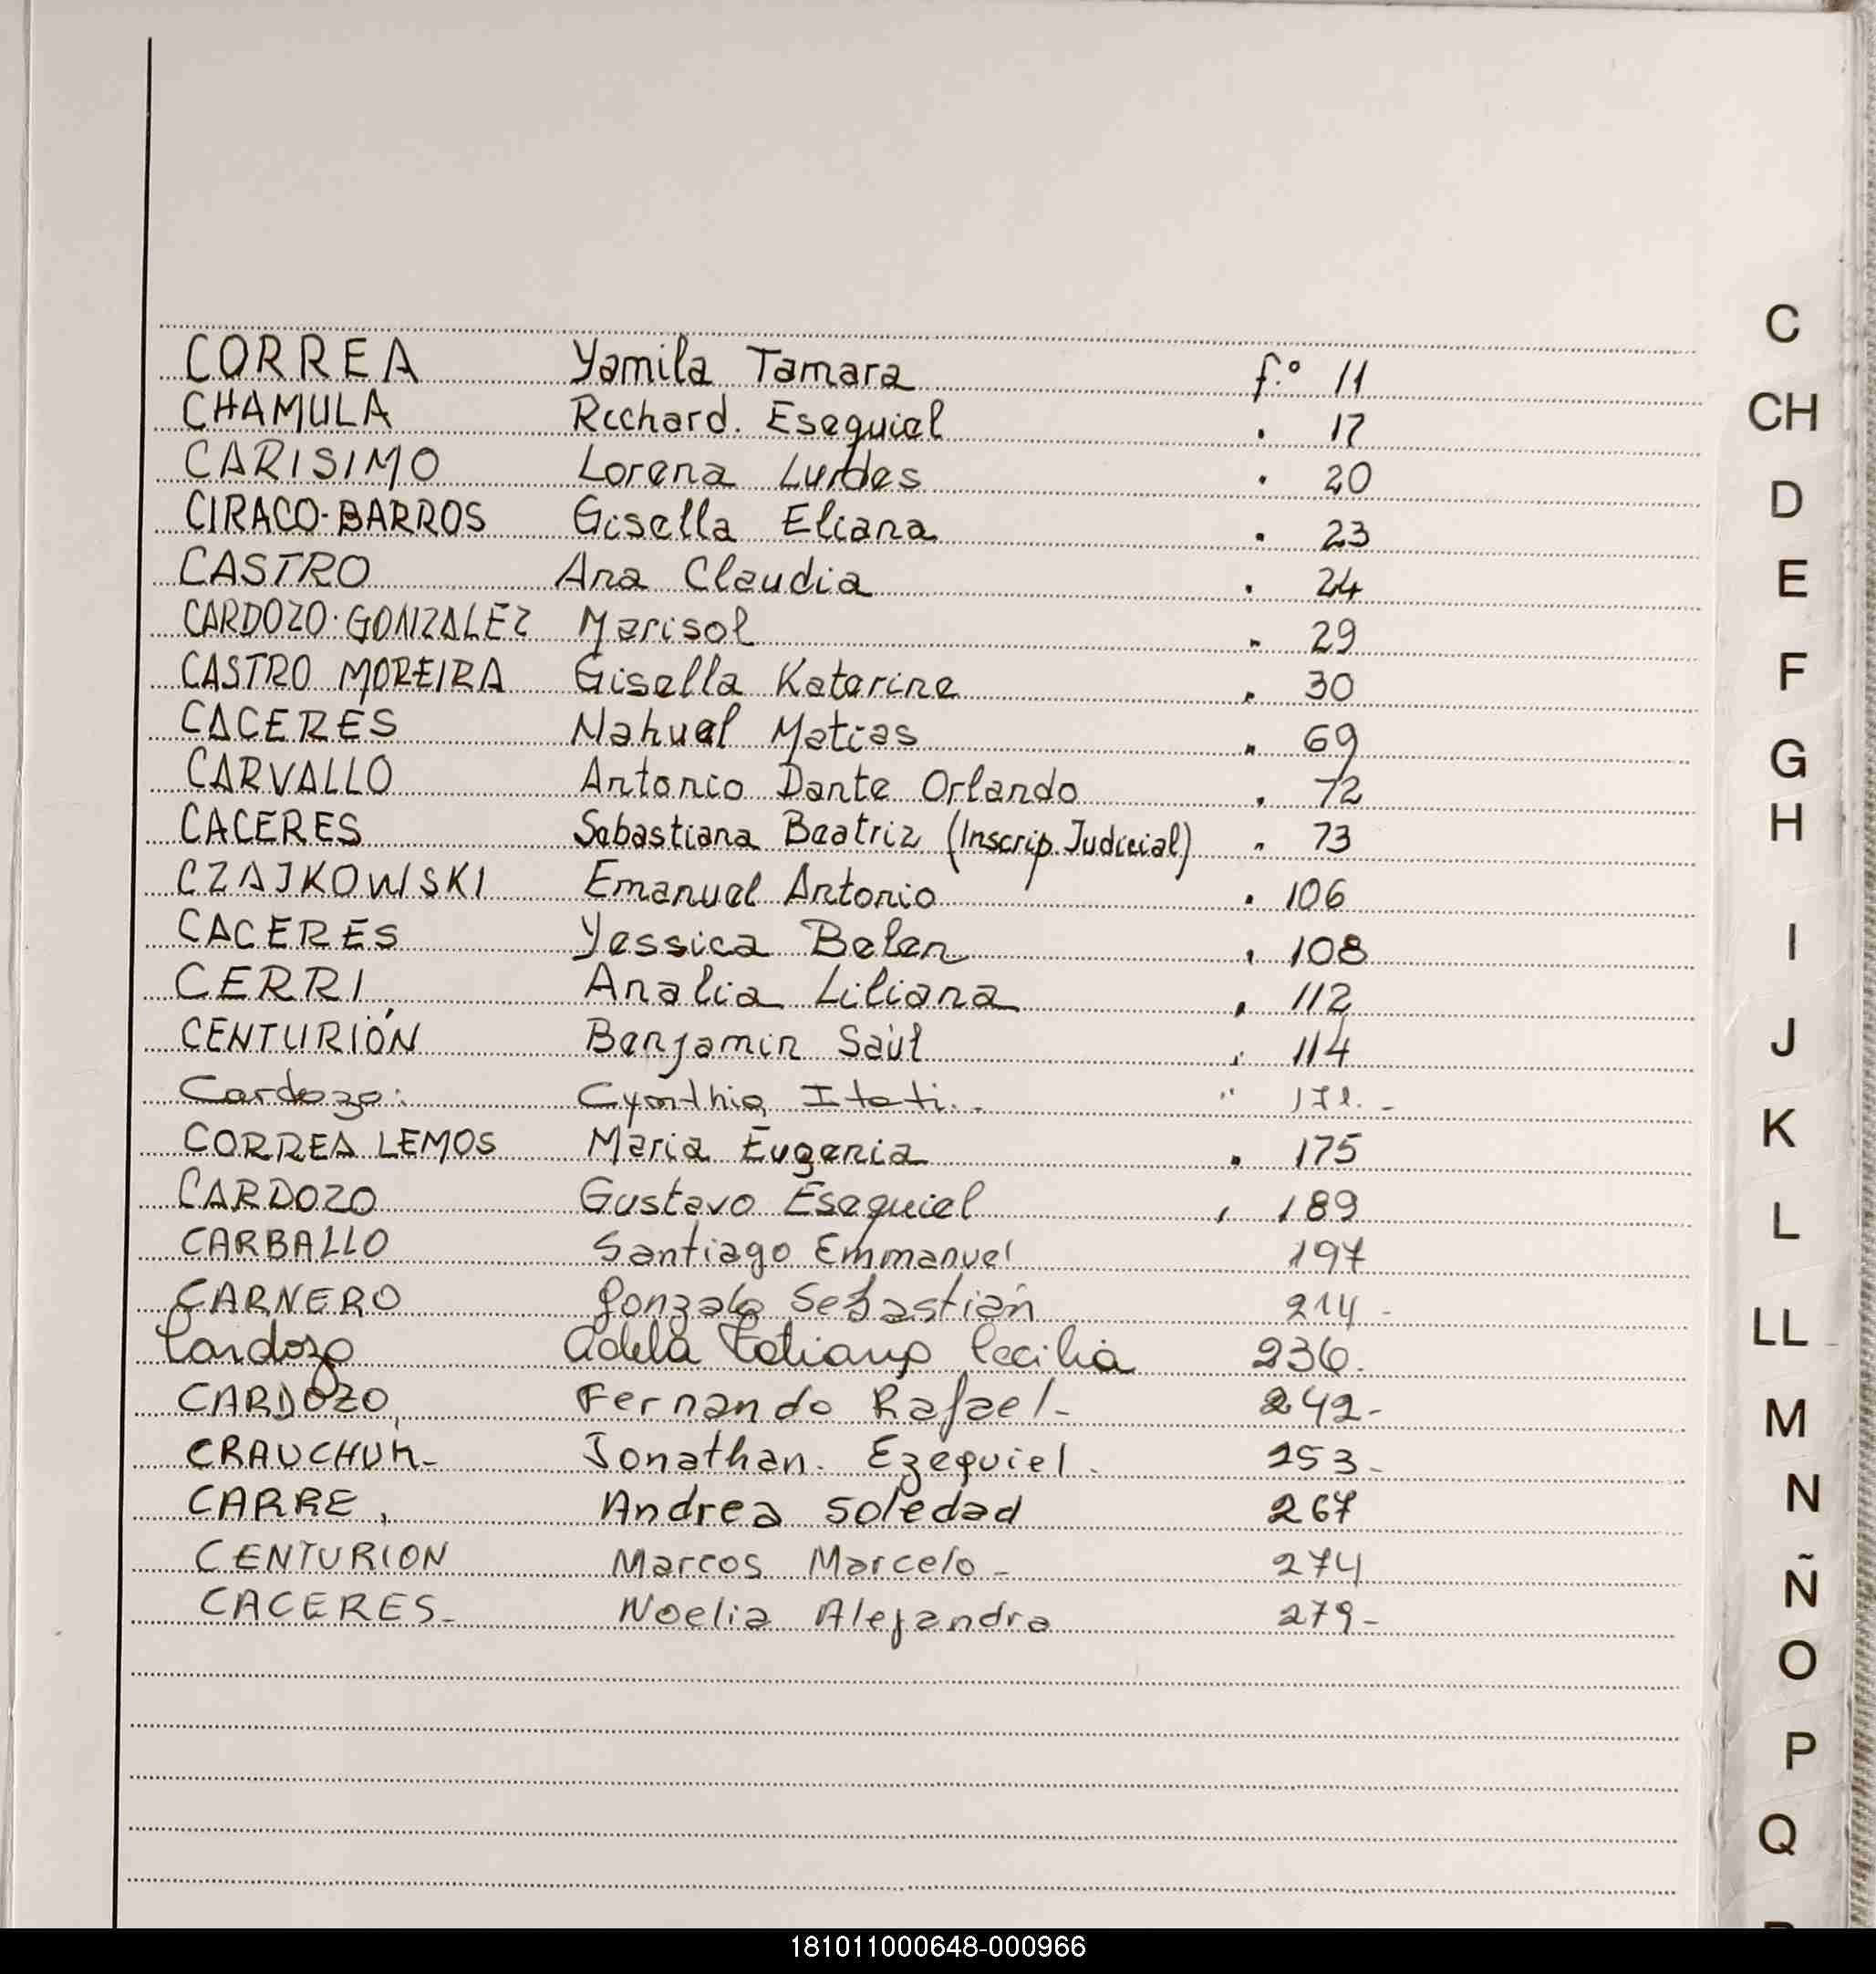 CORREA Yamila Tamara f.º 11
CHAMULA Richard. Esequiel " 17
CARISIMO Lorena Lurdes " 20
CIRACO-BARROS Gisella Eliana " 23
CASTRO Ana Claudia " 24
CARDOZO-GONZALEZ Marisol " 29
CASTRO MOREIRA Gisella Katerine " 30
CACERES Nahuel Matias " 69
CARVALLO Antonio Dante Orlando " 72
CACERES Sebastiana Beatriz (Inscrip. Judicial) " 73
CZAJKOWSKI Emanuel Antonio " 106
CACERES Yessica Belen " 108
CERRI Analia Liliana " 112
CENTURIÓN Benjamin Saúl " 114
Cardozo: Cynthia Itati. "
CORREA LEMOS Maria Eugenia " 175
CARDOZO Gustavo Esequiel " 189
CARBALLO Santiago Emmanuel 197
CARNERO Gonzalo Sebastián 214-
Cardozo Adela Tatiana Cecilia 236.
CARDOZO, Fernando Rafael- 242-
CRAUCHUK- Jonathan. Ezequiel. 253-
CARRE, Andrea Soledad 267
CENTURION Marcos Marcelo- 274
CACERES- Noelia Alejandra 279-
C
CH
D
E
F
G
H
I
J
K
L
LL
M
N
Ñ
O
P
Q
181011000648-000966